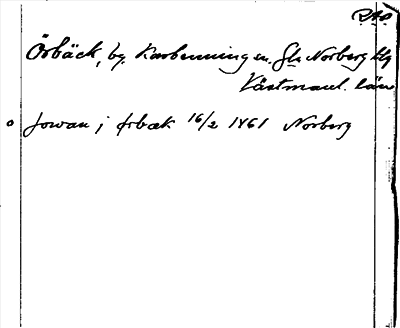 RAÄ
Örbäck, by, Karbenning sn. Gla Norberg blg
Västmanl. län
Jowan i ørbæk 16/2 1461 Norberg